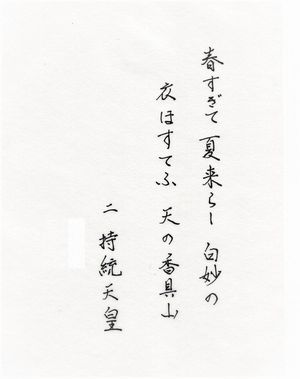 春すぎて 夏来らし 白妙の
衣ほすてふ 天の香具山
二 持統天皇